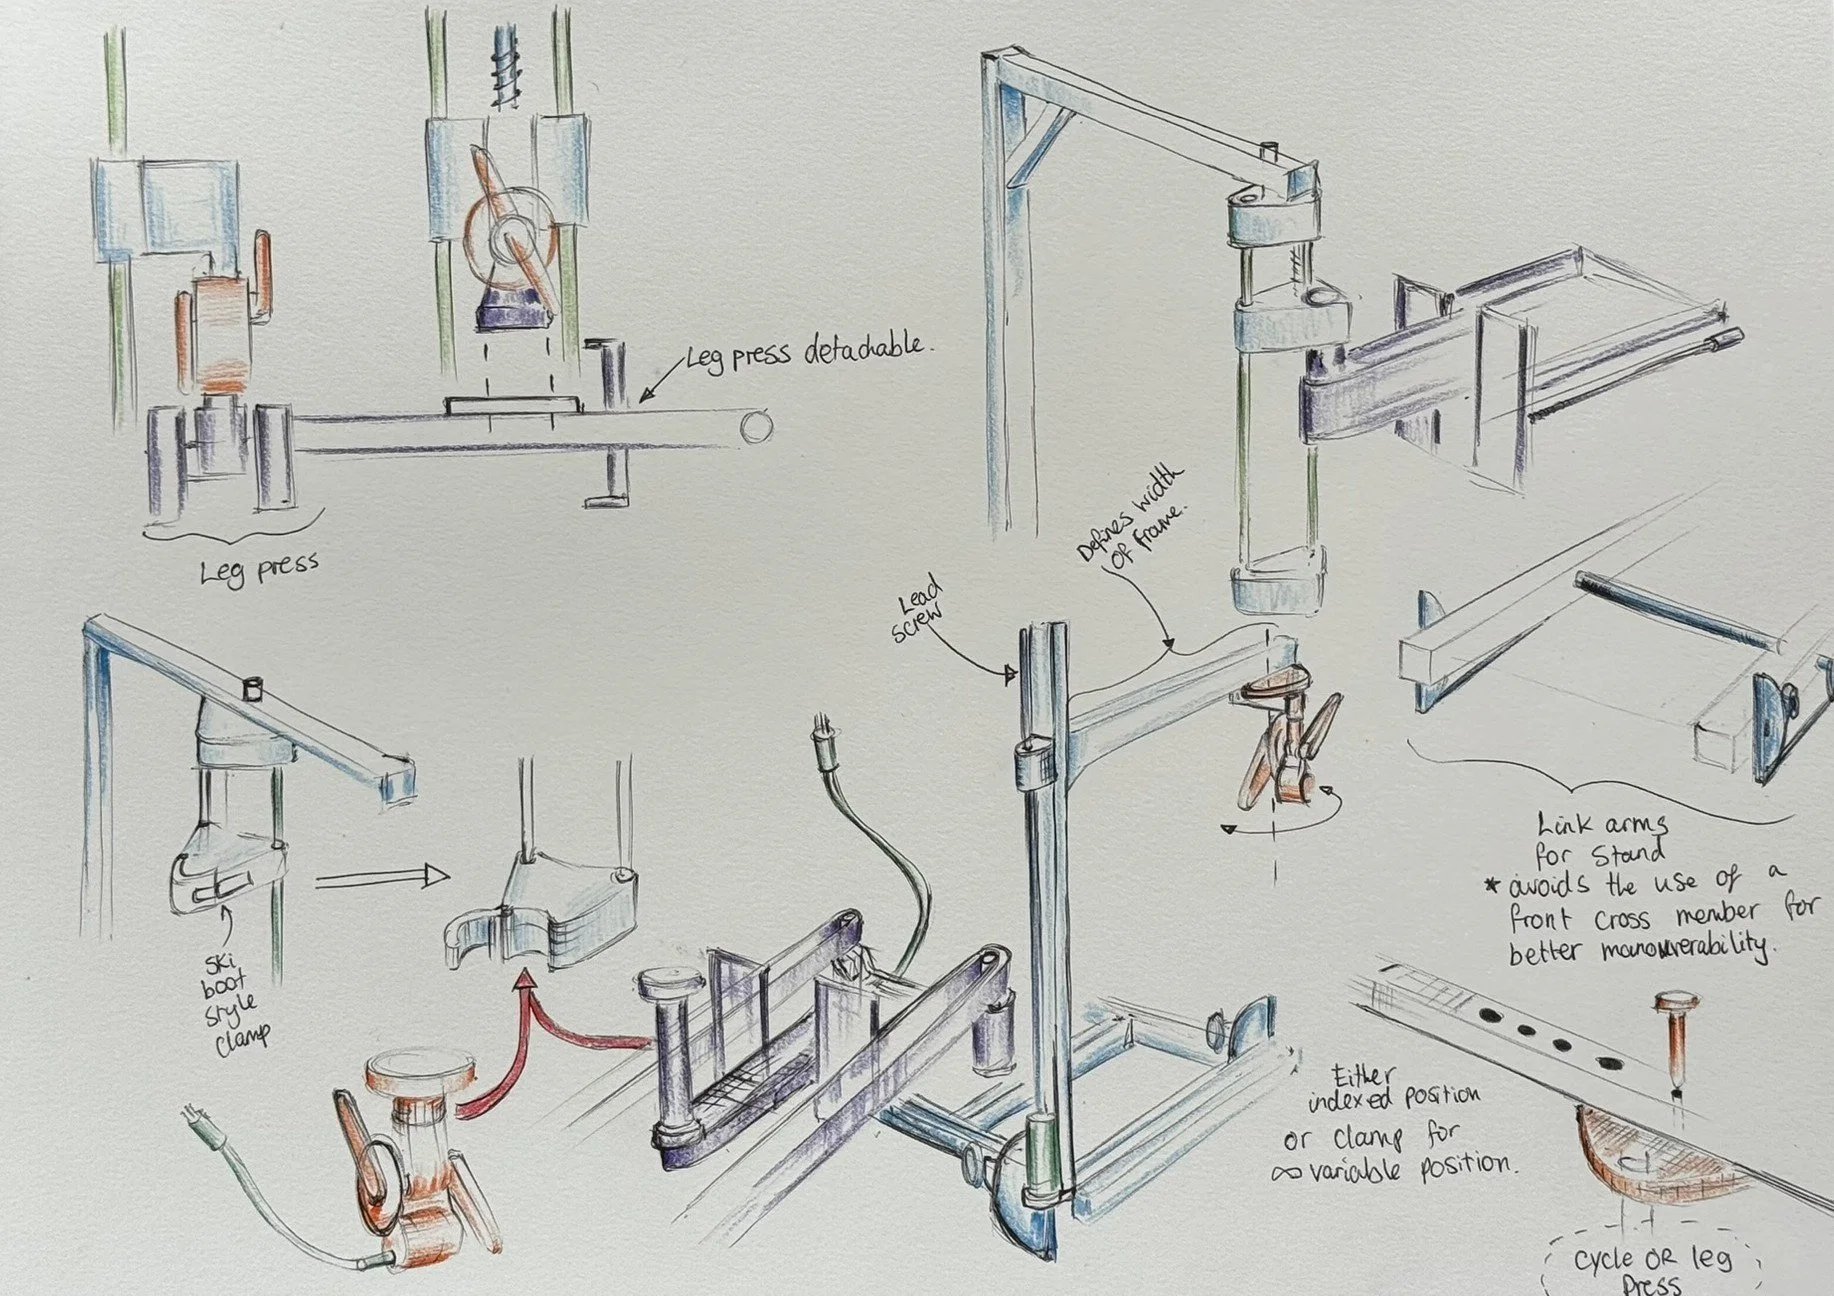 Leg press detachable.
Leg press
Defines width
of frame.
Lead
screw
Ski
boot
style
clamp
Link arms
for stand
* avoids the use of a
front cross member for
better manouverability.
Either
indexed position
or clamp for
∞ variable position.
cycle OR leg
press